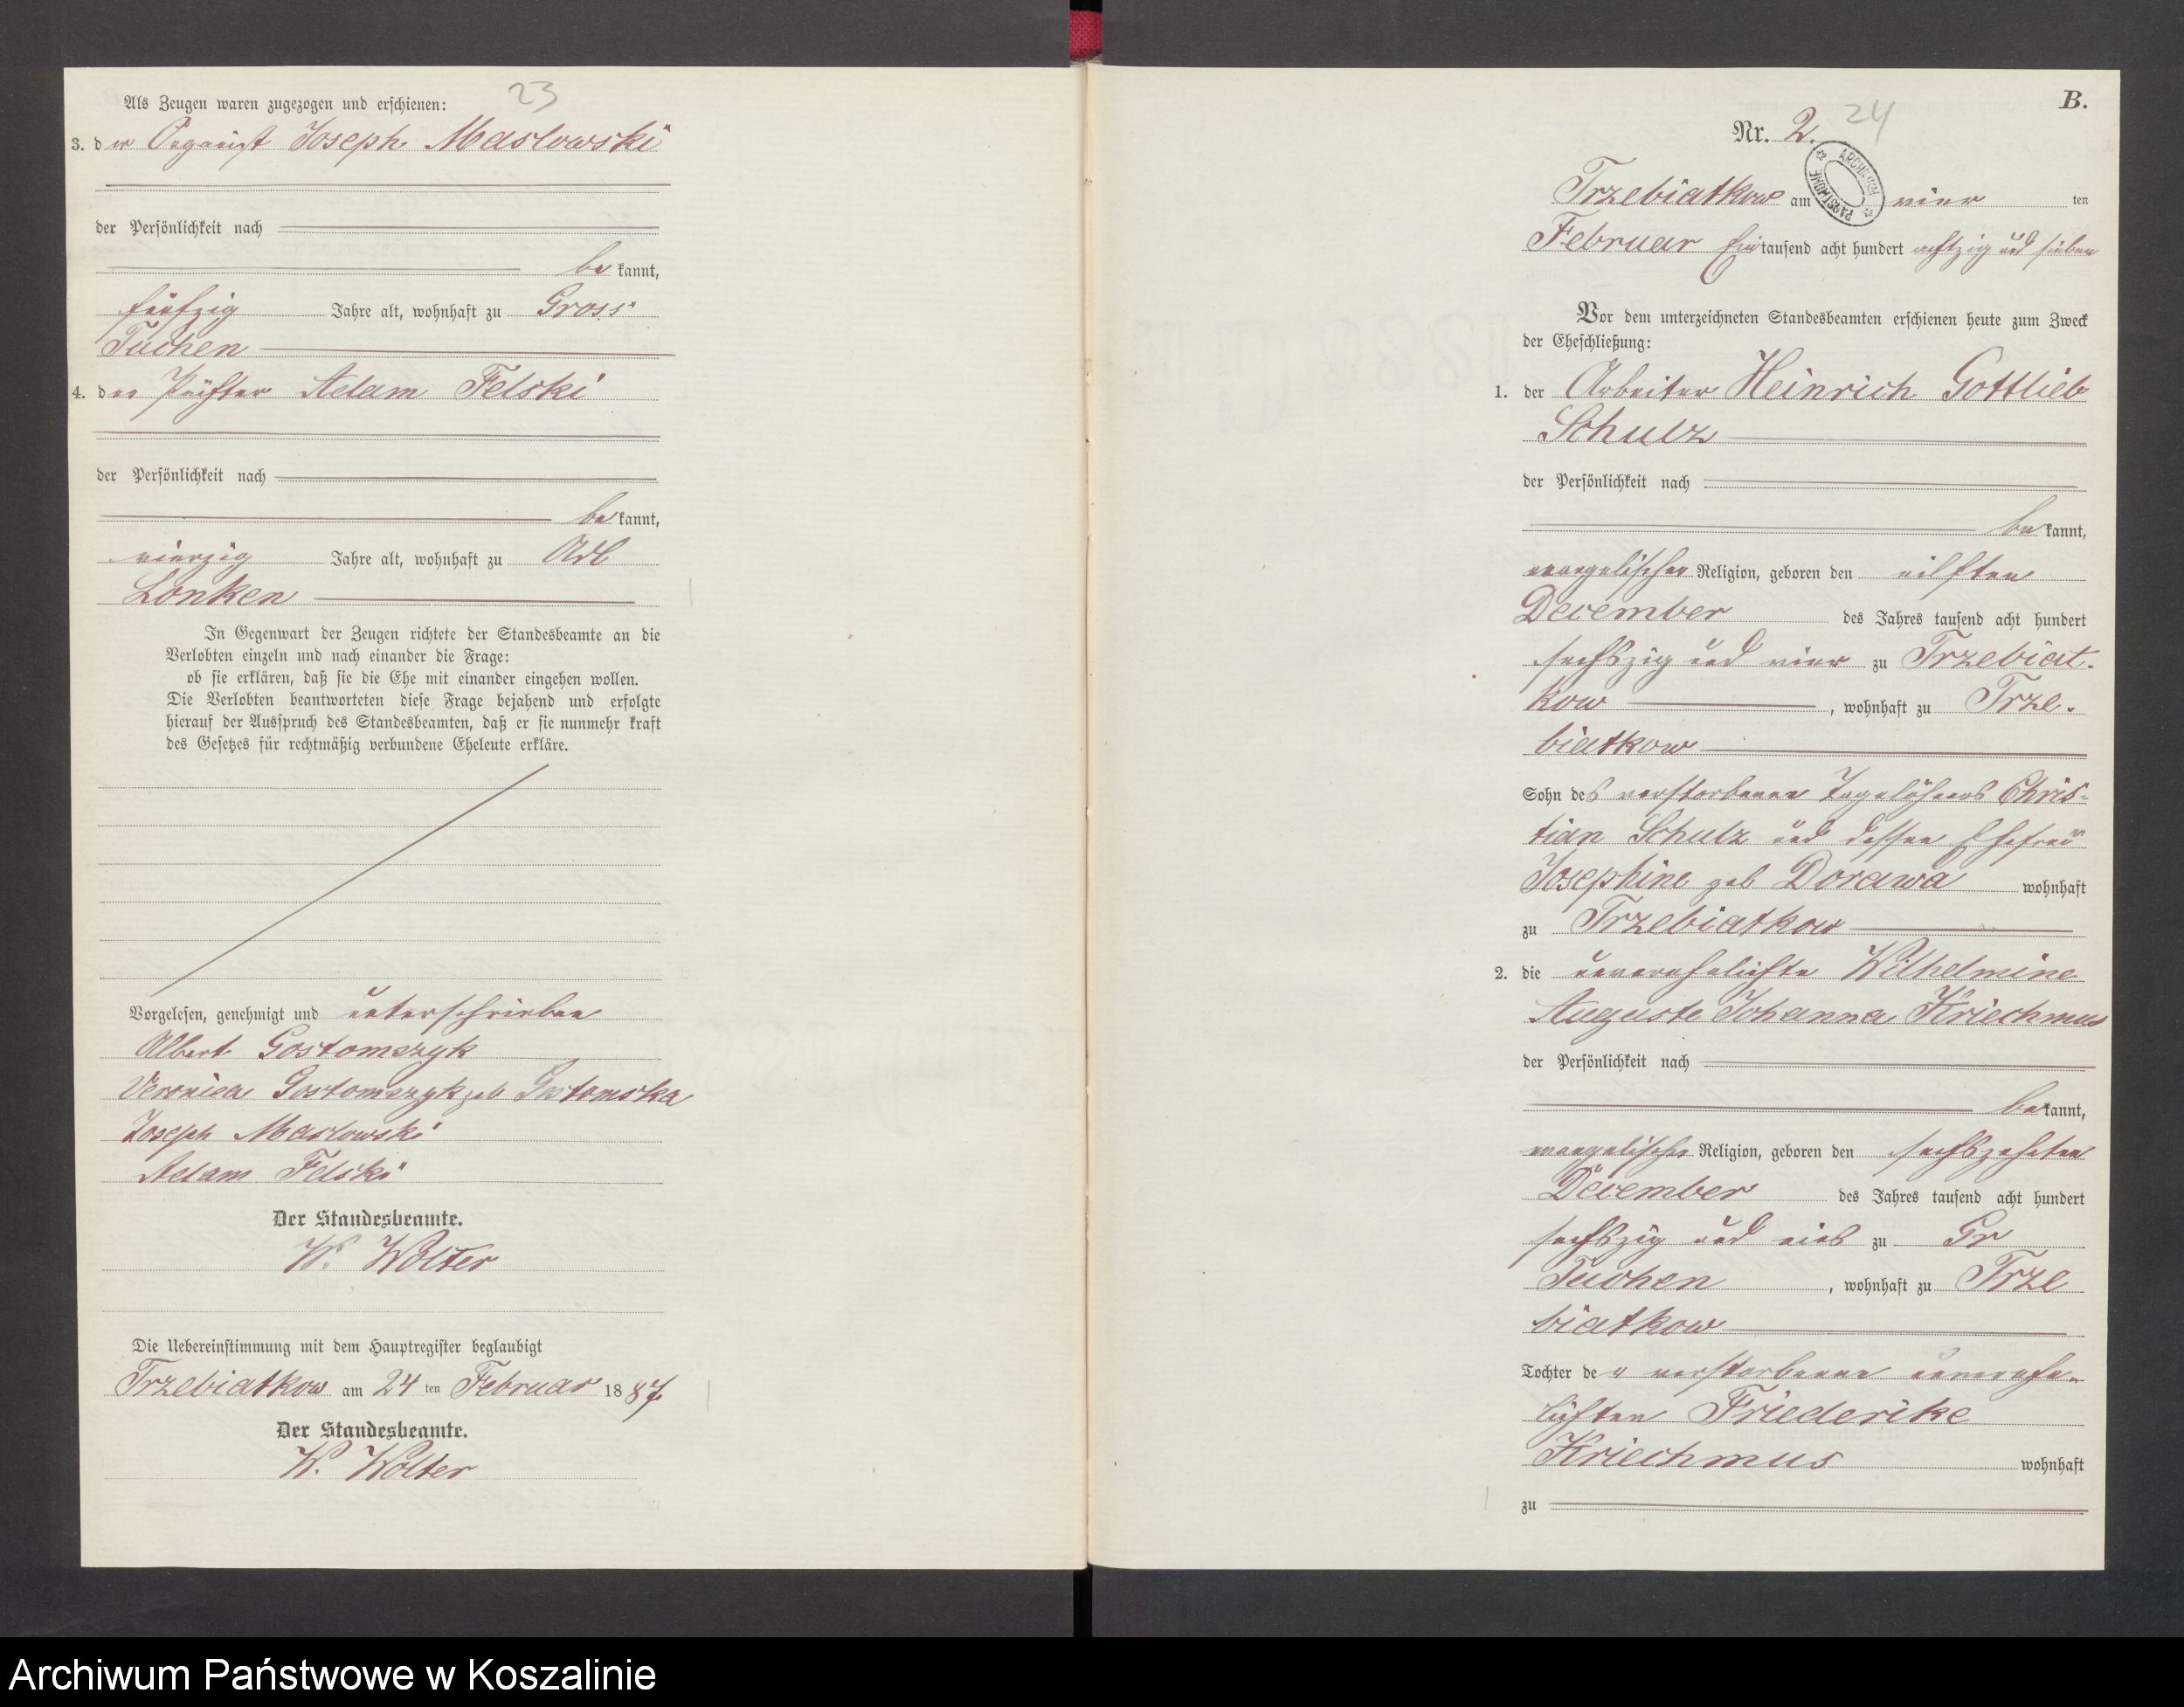 23
Als Zeugen waren zugezogen und erschienen:
3. der Organist Joseph Maslowski
der Persönlichkeit nach
bekannt,
fünfzig Jahre alt, wohnhaft zu Gross
Tuchen
4. der Pächter Adam Felski
der Persönlichkeit nach
bekannt,
vierzig Jahre alt, wohnhaft zu Adl
Lonken
In Gegenwart der Zeugen richtete der Standesbeamte an die
Verlobten einzeln und nach einander die Frage:
ob sie erklären, daß sie die Ehe mit einander eingehen wollen.
Die Verlobten beantworteten diese Frage bejahend und erfolgte
hierauf der Ausspruch des Standesbeamten, daß er sie nunmehr kraft
des Gesetzes für rechtmäßig verbundene Eheleute erkläre.
Vorgelesen, genehmigt und unterschrieben
Albert Gostomczyk
Veronica Gostomczyk geb Gostomska
Joseph Maslowski
Adam Felski
Der Standesbeamte.
W. Wolter
Die Uebereinstimmung mit dem Hauptregister beglaubigt
Trzebiatkow am 24 ten Februar 1887
Der Standesbeamte.
W. Wolter
B.
24
Nr. 2.
Trzebiatkow am vier ten
Februar Eintausend acht hundert achtzig und sieben
Vor dem unterzeichneten Standesbeamten erschienen heute zum Zweck
der Eheschließung:
1. der Arbeiter Heinrich Gottlieb
Schulz
der Persönlichkeit nach
bekannt,
evangelischer Religion, geboren den eilften
December des Jahres tausend acht hundert
sechszig und vier zu Trzebiat-
kow, wohnhaft zu Trze-
biatkow
Sohn des verstorbenen Tagelöhners Chris-
tian Schulz und dessen Ehefrau
Josephine geb Dorawa wohnhaft
zu Trzebiatkow
2. die unverehelichte Wilhelmine
Auguste Johanna Kriechmus
der Persönlichkeit nach
bekannt,
evangelischer Religion, geboren den sechszehnten
December des Jahres tausend acht hundert
sechszig und eins zu Gr
Tuchen, wohnhaft zu Trze
biatkow
Tochter der verstorbenen unverehe-
lichten Friederike
Kriechmus wohnhaft
zu
Archiwum Państwowe w Koszalinie